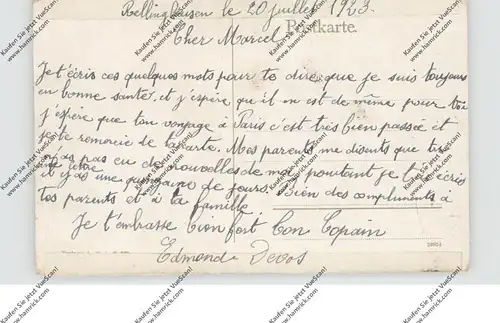 Bellinghausen le 20 juillet 1923.
Postkarte.
Cher Marcel
Je t'écris ces quelques mots pour te dire que je suis toujours
en bonne santé, et j'espère que il en est de même pour toi
j'espère que ton voyage à Paris c'est très bien passée et
je te remercie de la carte. Mes parents me disents que tu
n'as pas eu de nouvelles de moi pourtant je t'ai écris
une lettre
il y as une quinzaine de jours. Bien des compliments à
tes parents et à la famille
Je t'embrasse bien fort Ton Copain
Edmond Devos
Kaufen Sie jetzt VueScan!
www.hamrick.com